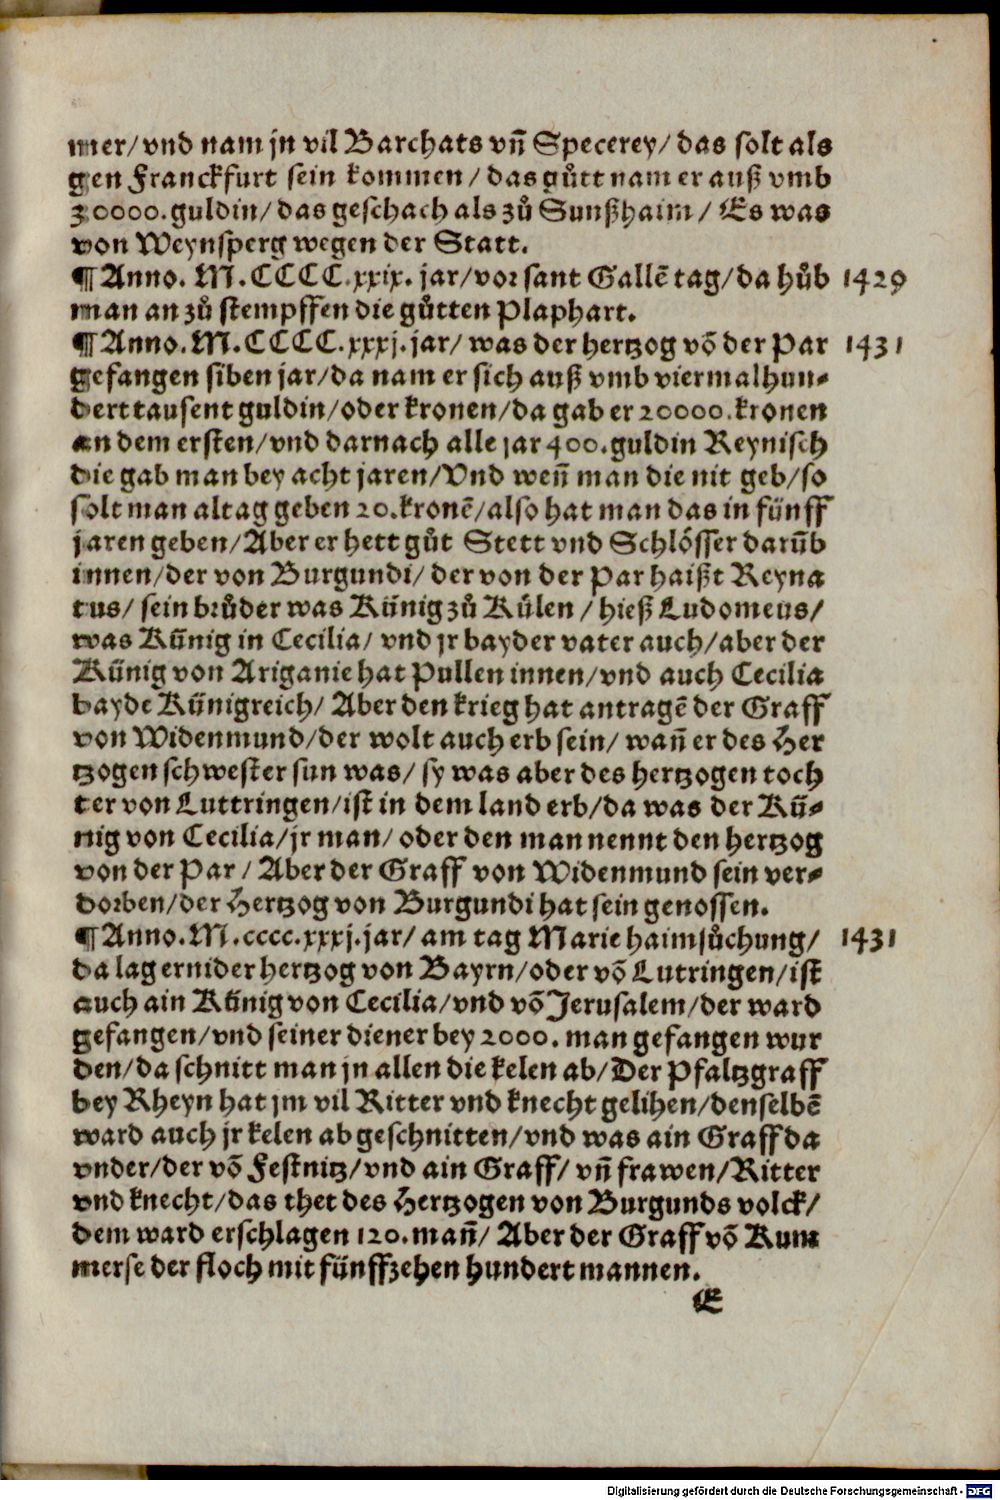 mer/vnd nam jn vil Barchats vñ Specerey/das solt als
gen Franckfurt sein kommen/das gůtt nam er auß vmb
30000.guldin/das geschach als zů Sunßhaim/Es was
von Weynsperg wegen der Statt.
¶Anno. M.CCCC.xxix. jar/vor sant Gallē tag/da hůb 1429
man an zů stempffen die gůtten Plaphart.
¶Anno.M.CCCC.xxxj.jar/ was der hertzog vō der Par 1431
gefangen siben jar/da nam er sich auß vmb viermalhun-
dert tausent guldin/oder kronen/da gab er 20000.kronen
an dem ersten/vnd darnach alle jar 400.guldin Reynisch
die gab man bey acht jaren/Vnd weñ man die nit geb/so
solt man altag geben 20.kronē/also hat man das in fünff
jaren geben/Aber er hett gůt Stett vnd Schlösser darüb
innen/der von Burgundi/der von der Par haißt Reyna
tus/ sein brůder was Künig zů Külen/hieß Ludomeus/
was Künig in Cecilia/ vnd jr bayder vater auch/aber der
Künig von Ariganie hat Pullen innen/vnd auch Cecilia
bayde Künigreich/ Aber den krieg hat antragē der Graff
von Widenmund/der wolt auch erb sein/ wañ er des Her
tzogen schwester sun was/ sy was aber des hertzogen toch
ter von Luttringen/ist in dem land erb/da was der Kü-
nig von Cecilia/jr man/ oder den man nennt den hertzog
von der Par/Aber der Graff von Widenmund sein ver-
dorben/der Hertzog von Burgundi hat sein genossen.
¶Anno.M.cccc.xxxj.jar/ am tag Marie haimsůchung/ 1431
da lag ernider hertzog von Bayrn/oder vō Lutringen/ist
auch ain Künig von Cecilia/vnd vō Jerusalem/der ward
gefangen/vnd seiner diener bey 2000. man gefangen wur
den/da schnitt man jn allen die kelen ab/Der Pfaltzgraff
bey Rheyn hat jm vil Ritter vnd knecht gelihen/denselbē
ward auch jr kelen abgeschnitten/vnd was ain Graff da
vnder/der vō Festnitz/vnd ain Graff/ vñ frawen/Ritter
vnd knecht/das thet des Hertzogen von Burgunds volck/
dem ward erschlagen 120.mañ/ Aber der Graff vō Kum
merse der floch mit fünffzehen hundert mannen.
E
Digitalisierung gefördert durch die Deutsche Forschungsgemeinschaft - DFG